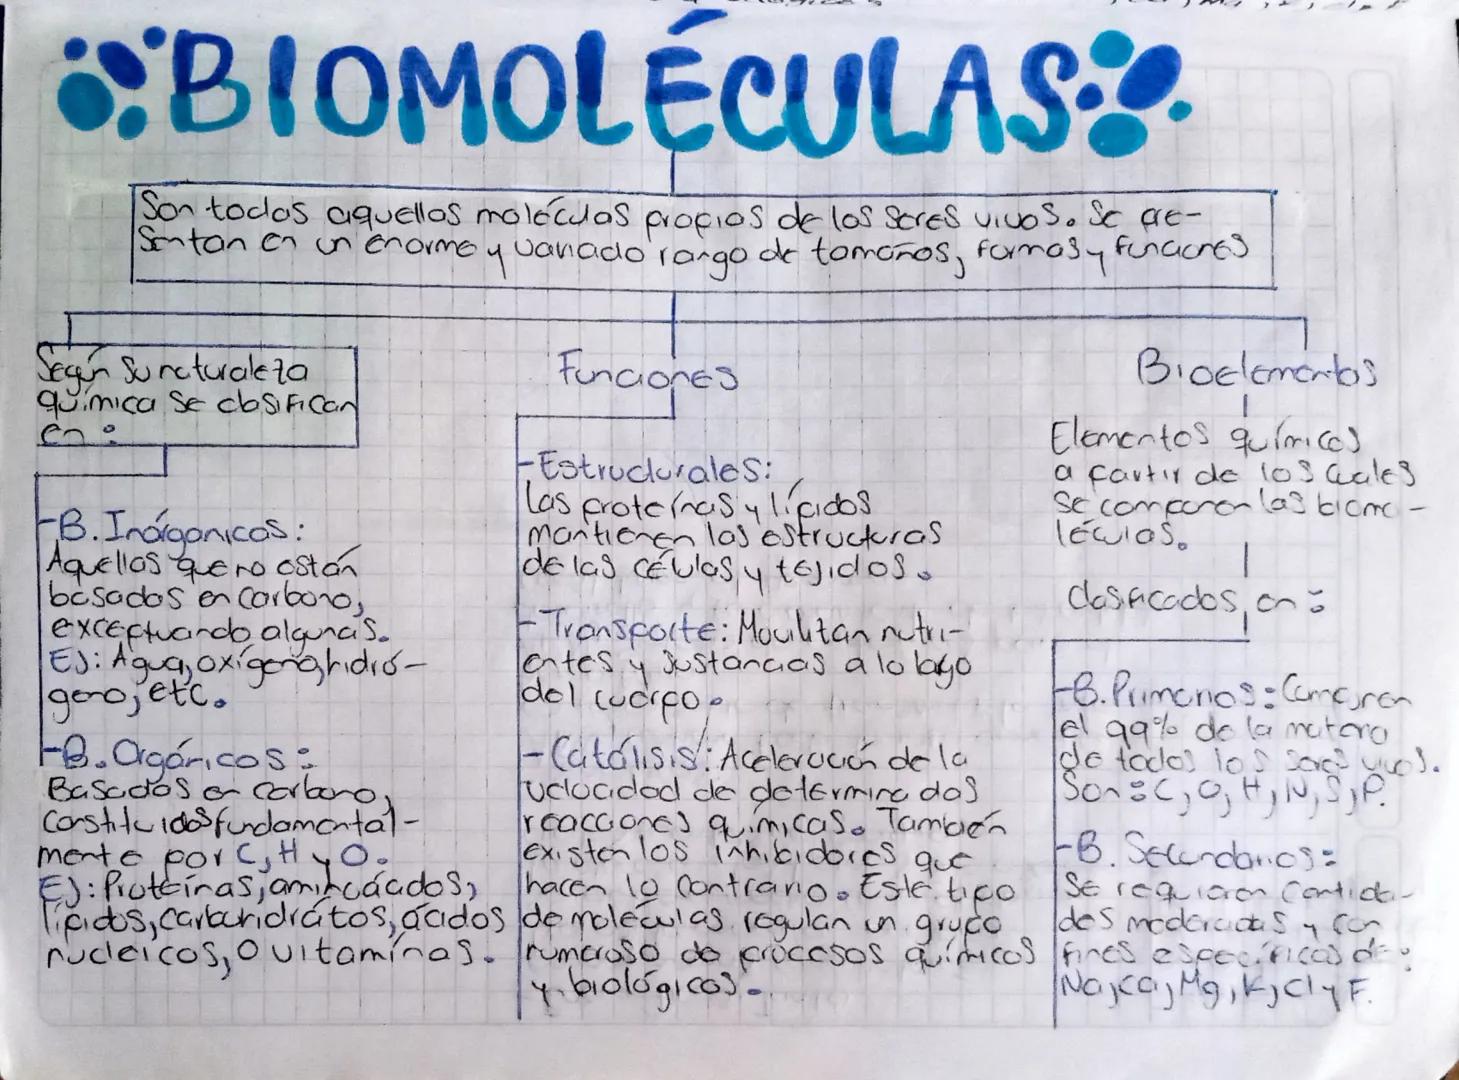 BIOMOLÉCULAS
Son todas aquellas moléculas propias de los seres vivos. Se pre-
sentan en un enorme y variado rango de tamaños, formas y funciones
Según su naturaleza
química se clasifican
en:
-B. Inórganicas:
Aquellas que no están
basadas en carbono,
exceptuando algunas.
EJ: Agua, oxígeno, hidró-
geno, etc.
-B. Orgánicas:
Basadas en carbono,
constituidas fundamental-
mente por C, H y O.
EJ: Proteínas, aminoácidos,
lípidos, carbohidrátos, ácidos
nucleicos, o vitamínas.
Funciones
-Estructurales:
Las proteínas y lípidos
mantienen las estructuras
de las células y tejidos.
-Transporte: Movilitan nutri-
entes y sustancias a lo largo
del cuerpo.
-Catálisis: Aceleración de la
velocidad de determinadas
reacciones químicas. También
existen los inhibidores que
hacen lo contrario. Este tipo
de moléculas regulan un grupo
numeroso de procesos químicos
y biológicos.
Bioelementos
Elementos químicos
a partir de los cuales
se componen las biomo-
léculas.
clasificados en:
-B. Primarios: Componen
el 99% de la materia
de todos los seres vivos.
Son: C, O, H, N, S, P.
-B. Secundarios:
Se requieren cantida-
des moderadas y con
fines específicos de:
Na, Ca, Mg, K, Cl y F.